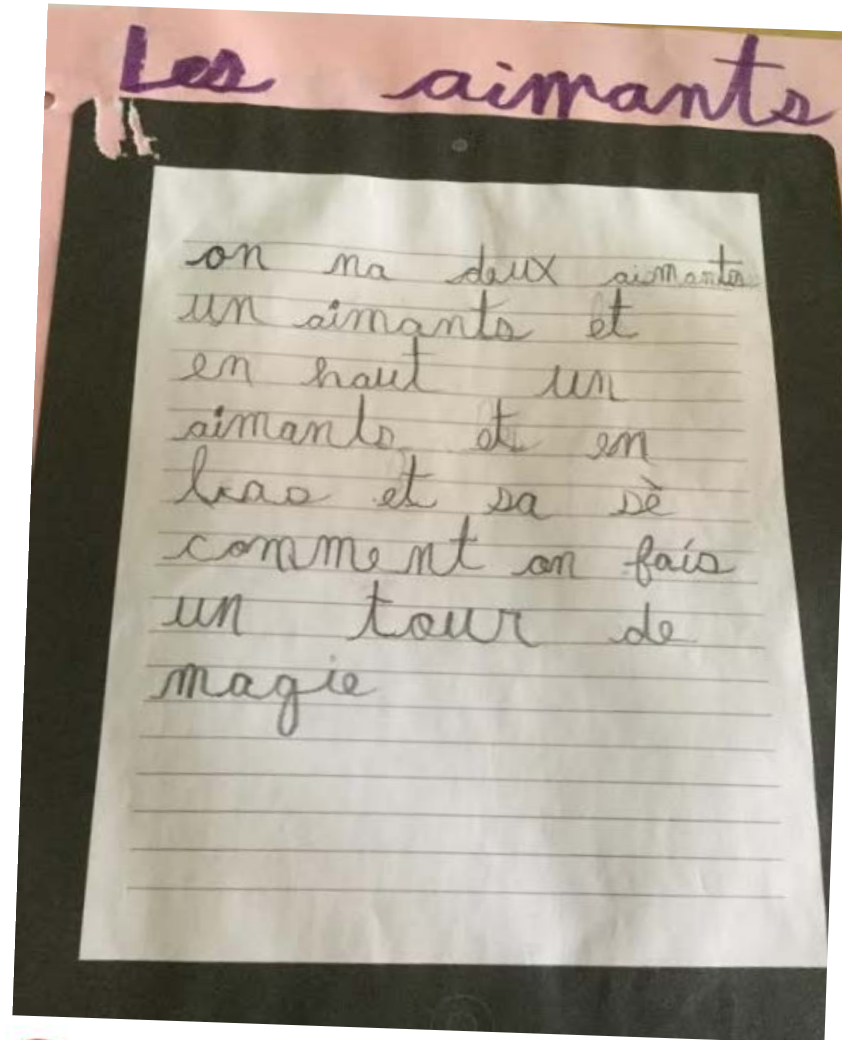 Les aimants
on na deux aimants
un aimants et
en haut un
aimants et en
bas et sa sè
comment on fais
un tour de
magie